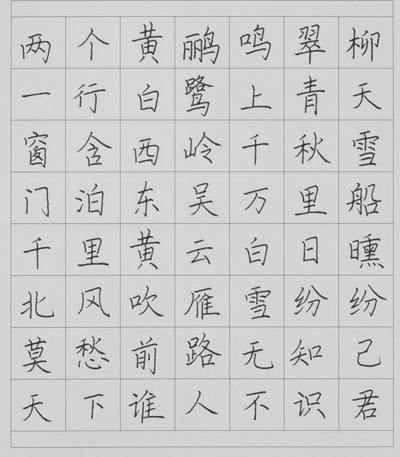 两个黄鹂鸣翠柳
一行白鹭上青天
窗含西岭千秋雪
门泊东吴万里船
千里黄云白日曛
北风吹雁雪纷纷
莫愁前路无知己
天下谁人不识君